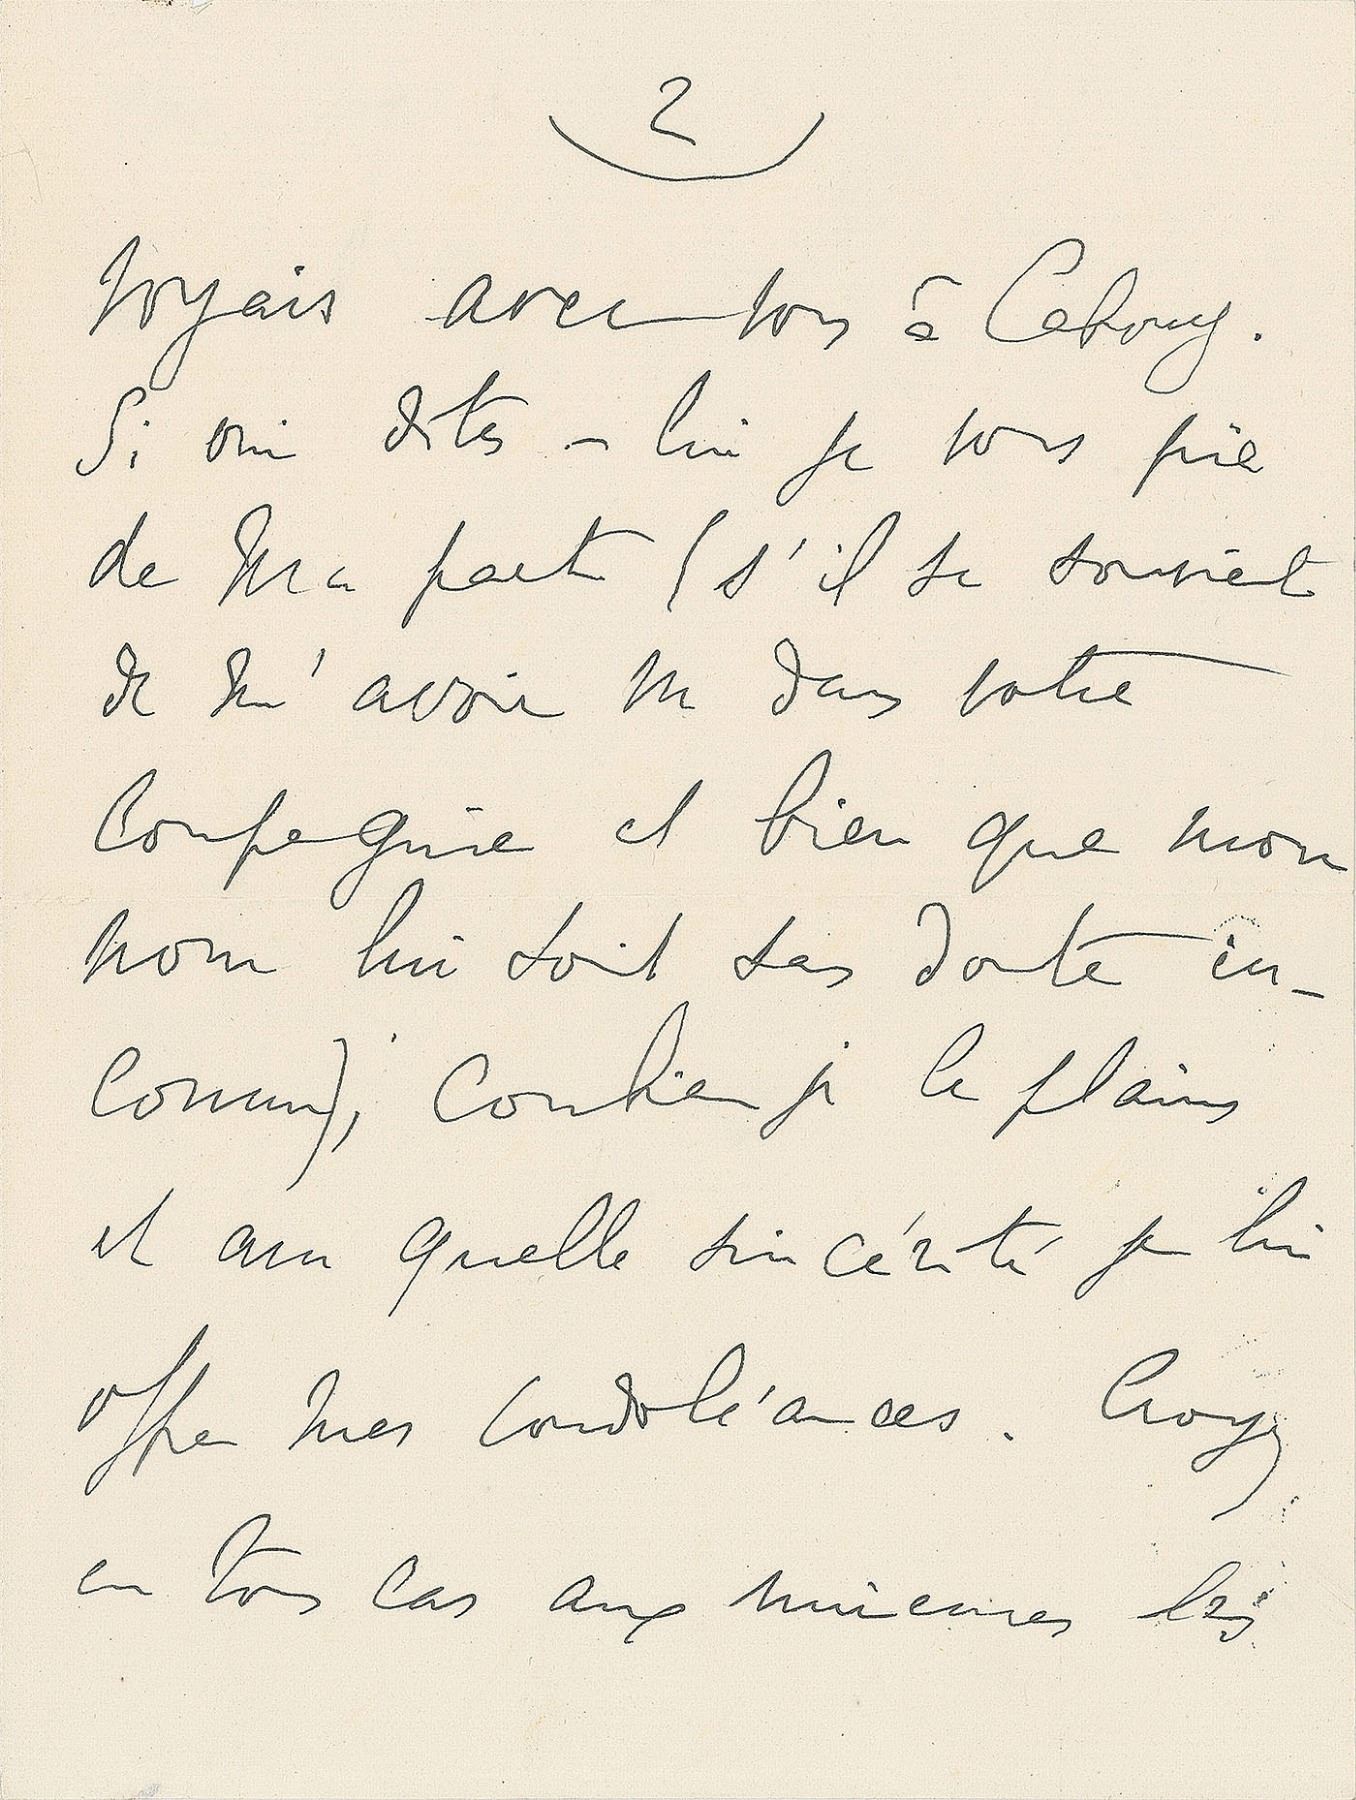 2
voyais avec vous à Cabourg.
Si oui dites-lui je vous prie
de ma part (s'il se souvient
de m'avoir vu dans votre
compagnie et bien que mon
nom lui soit sans doute in-
connu), combien je le plains
et avec quelle sincérité je lui
offre mes condoléances. Croyez
en tous cas aux miennes les